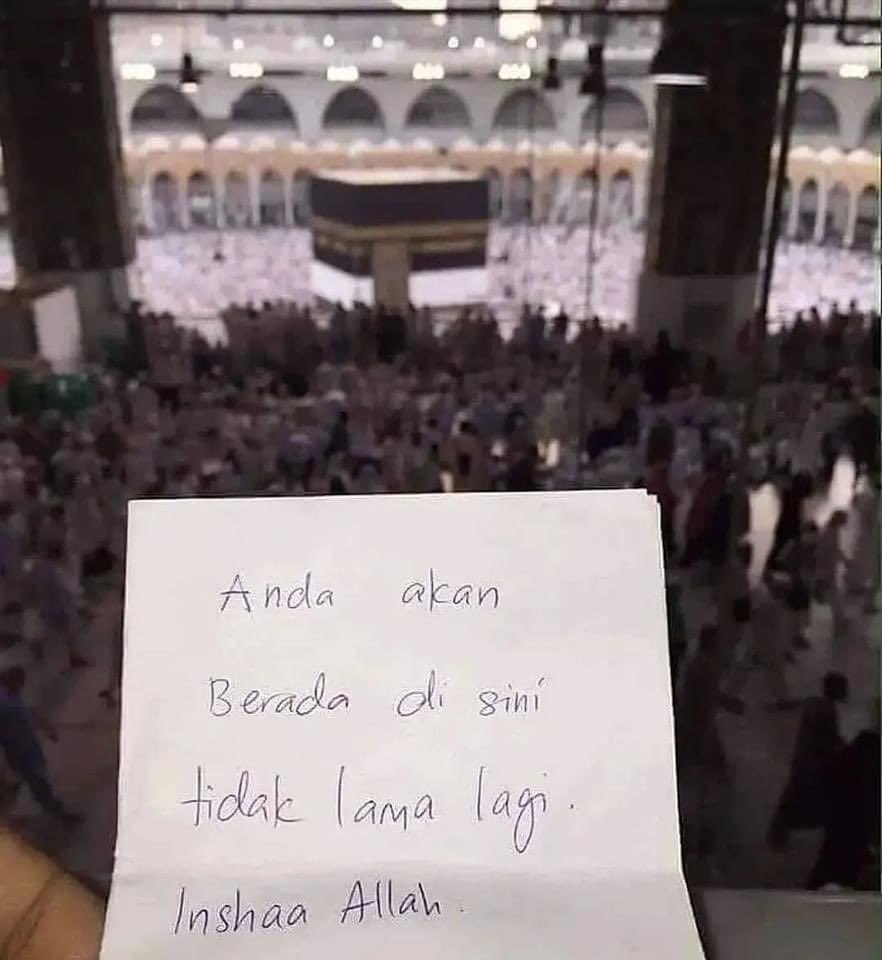 Anda akan
Berada di sini
tidak lama lagi.
Inshaa Allah.